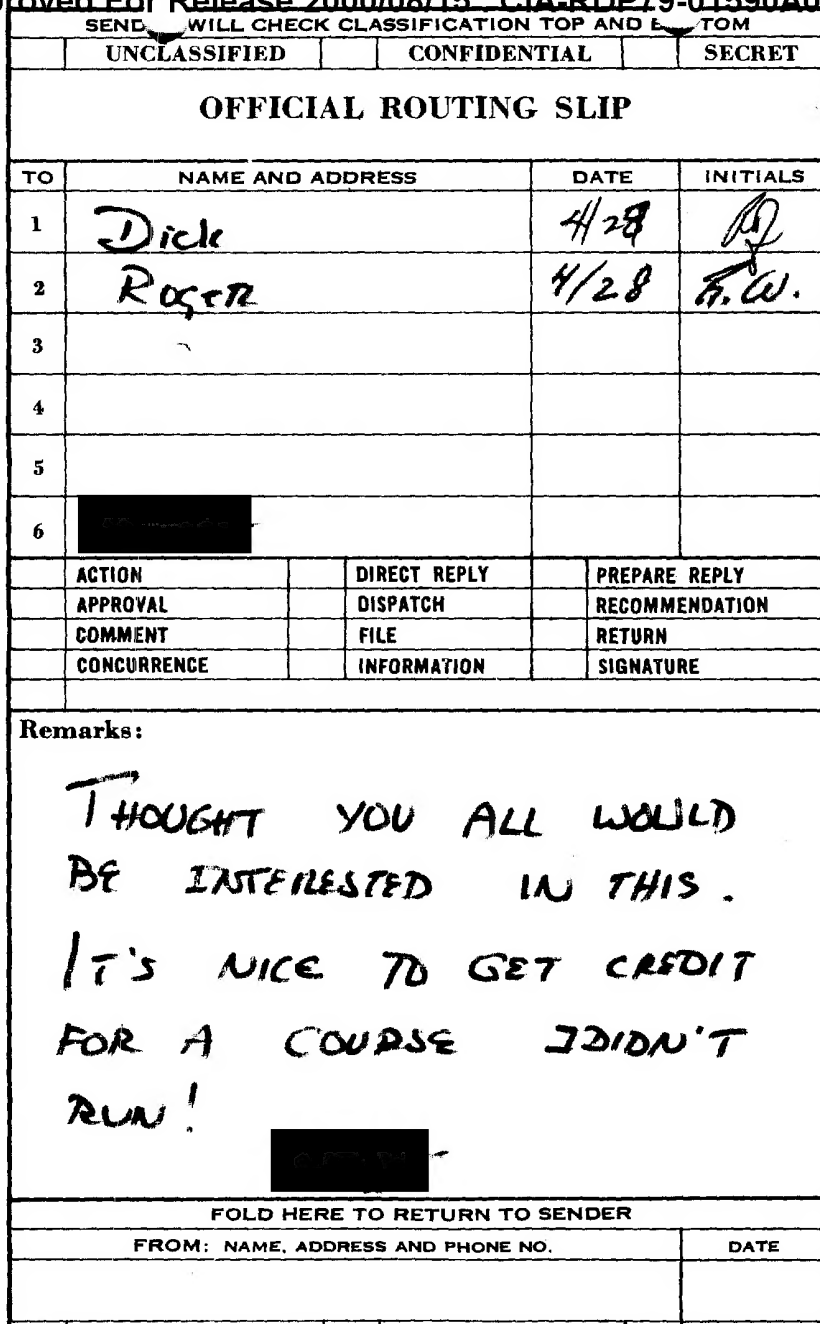 Approved For Release 2000/08/15 : CIA-RDP79-01590A0
SEND WILL CHECK CLASSIFICATION TOP AND B TOM
UNCLASSIFIED CONFIDENTIAL SECRET
OFFICIAL ROUTING SLIP
TO NAME AND ADDRESS DATE INITIALS
1 Dick 4/28
2 ROGER 4/28 R.W.
3
4
5
6
ACTION DIRECT REPLY PREPARE REPLY
APPROVAL DISPATCH RECOMMENDATION
COMMENT FILE RETURN
CONCURRENCE INFORMATION SIGNATURE
Remarks:
THOUGHT YOU ALL WOULD
BE INTERESTED IN THIS.
IT'S NICE TO GET CREDIT
FOR A COURSE I DIDN'T
RUN!
FOLD HERE TO RETURN TO SENDER
FROM: NAME, ADDRESS AND PHONE NO. DATE